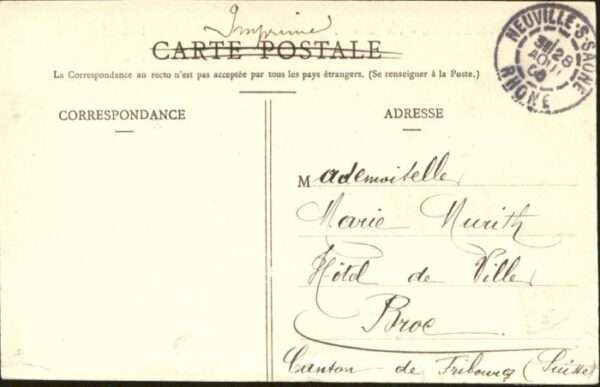 Imprimé
CARTE POSTALE
La Correspondance au recto n'est pas acceptée par tous les pays étrangers. (Se renseigner à la Poste.)
NEUVILLE-S-SAÔNE
28
AOUT
RHONE
CORRESPONDANCE
ADRESSE
Mademoiselle
Marie Murith
Hôtel de Ville
Broc
Canton de Fribourg (Suisse)